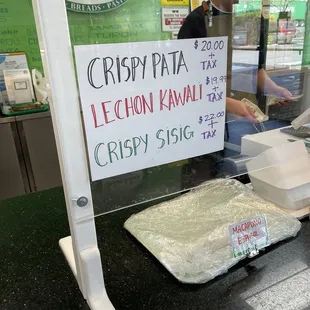 BREADS • PASTR
CRISPY PATA
$20.00
+
TAX
LECHON KAWALI
$19.99
+
TAX
CRISPY SISIG
$22.00
+
TAX
MACAPUNO